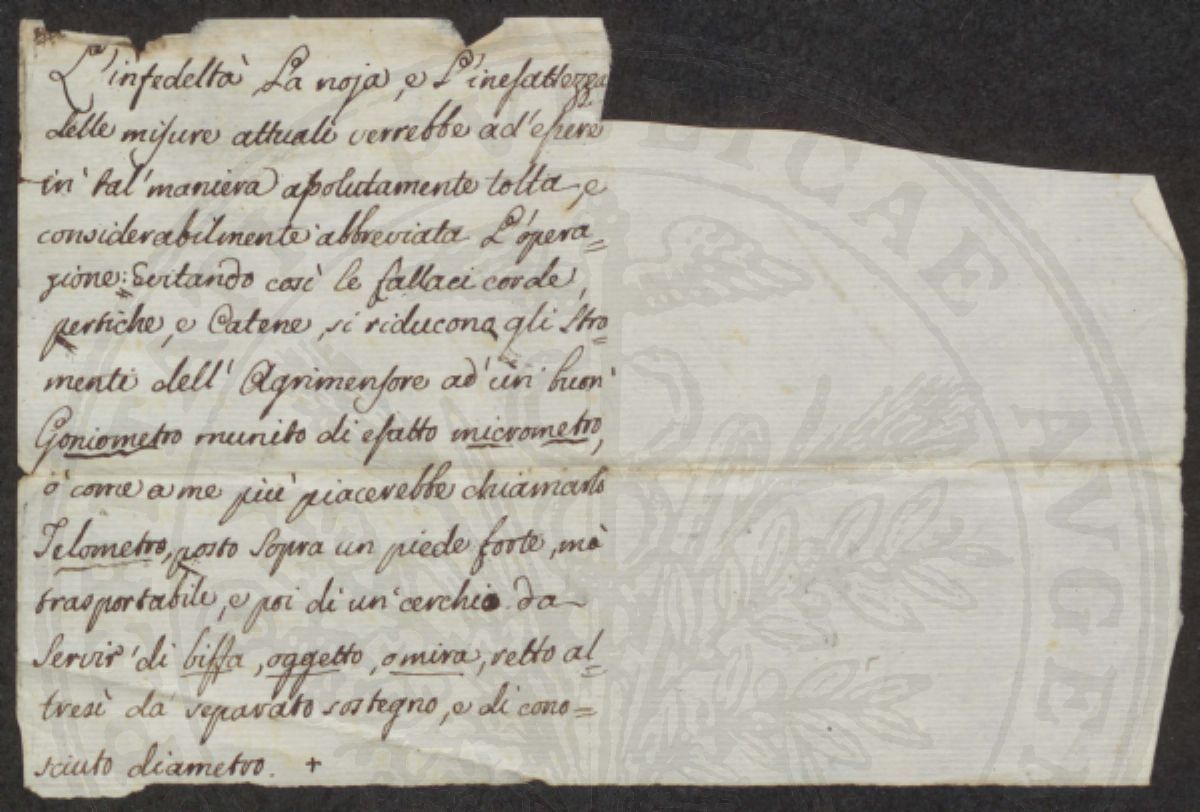 L'infedeltà La noja, e L'inesattezza
delle misure attuali verrebbe ad'essere
in' tal' maniera assolutamente tolta, e
considerabilmente abbreviata L'opera=
zione: Evitando così le fallaci corde,
pertiche, e Catene, si riducono gli Stro=
menti dell' Agrimensore ad' un' buon'
Goniometro munito di esatto micrometro,
ò come a me più piacerebbe chiamarlo
Telometro, posto Sopra un piede forte, mà
trasportabile, e poi di un' cerchio da
Servir' di biffa, oggetto, o mira, retto al=
tresì da separato sostegno, e di cono=
sciuto diametro. +